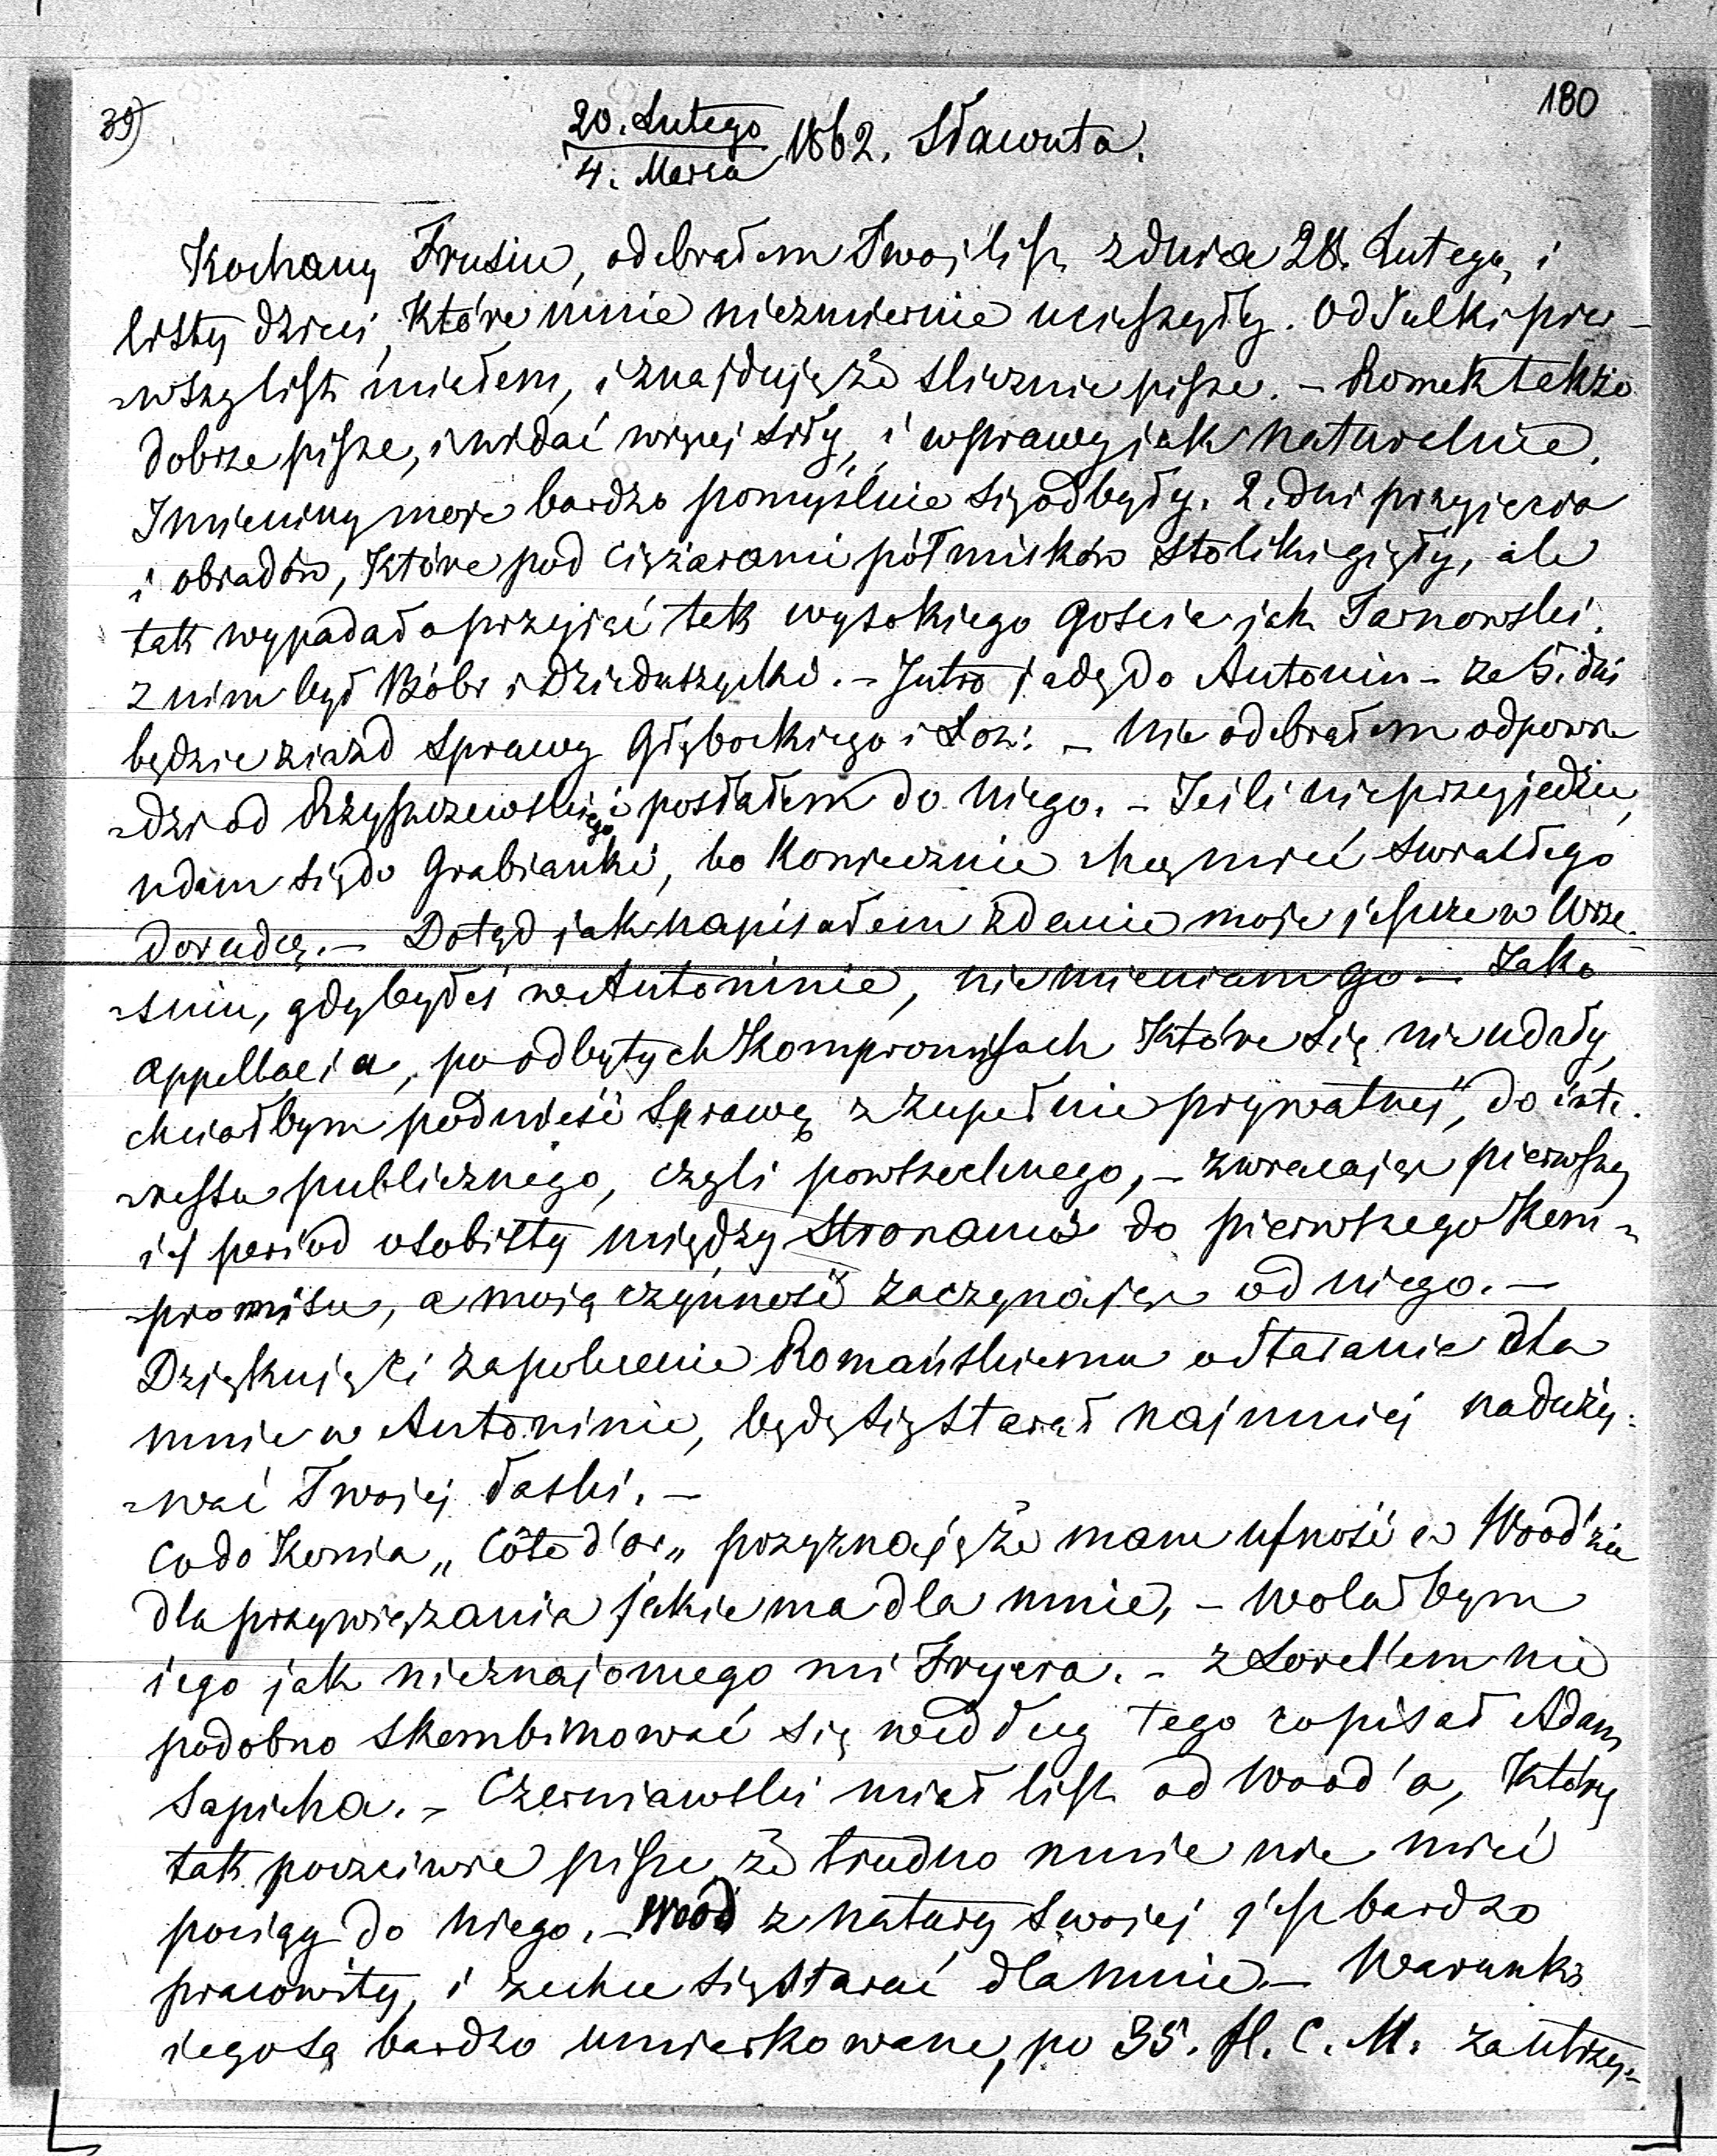 39)
180
20. Lutego
4. Marca 1862. Sławuta.
Kochany Frusiu, odebrałem Twoj list z dnia 28. Lutego, i
listy dzieci, które mnie niezmiernie ucieszyły. Od Julki pier-
-wszy list miałem, i znajduję że slicznie pisze. – Romek także
dobrze pisze, i widać więcej siły, i wprawy jak naturalnie.
Imieniny moje bardzo pomyślnie się odbyły. 2. dni przyjęcia
i obiadów, które pod ciężarami półmisków stoliki gięły, ale
tak wypadało przyjąć tak wysokiego Gościa jak Tarnowski.
z nim był Bóbr i Dzieduszycki. – Jutro jadę do Antonin – za 5. dni
będzie ziazd sprawy Głębockiego i Łoz: – Nie odebrałem odpowie
-dzi od Rzyszczewskiego i posłałem do niego. – Jeili nie przyjedzie,
udam się do Grabianki, bo koniecznie chcę mieć swiatłego
doradcę. – Dotąd jak napisałem zdanie moje jeszcze w Wrze-
-sniu, gdy byłeś w Antoninie, nie mieniam go – Jako
appellacia, po odbytych Kompromisach które się nie udały,
chciałbym podnieść Sprawę z zupełnie prywatnej, do inte-
-ressu publicznego, czyli powszechnego, – zwracając pierwszy
iej period osobisty między Stronami do pierwszego Kom-
-promisu, a moją czynność zaczynając od niego. –
Dziękuję Ci za polecenie Romańskiemu o staranie dla
mnie w Antoninie, będę się starał najmniej naduży-
-wać Twojej łaski. –
Co do Konia „Côte d'or„ przyznaję że mam ufność w Wood'zie
dla przywiązania jakie ma dla mnie, – wolałbym
iego jak nieznajomego mi Fryera. – z Lorel'em nie
podobno skombinować się według tego co pisał Adam
Sapieha. – Czerniawski miał list od Wood'a, który
tak poczciwie pisze, że trudno mnie nie mieć
pociągu do niego. – Wood z natury swojej jest bardzo
pracowity, i zechce się starać dla mnie – Warunki
iego są bardzo umiarkowane, po 35. fl. C. M. za utrzy-